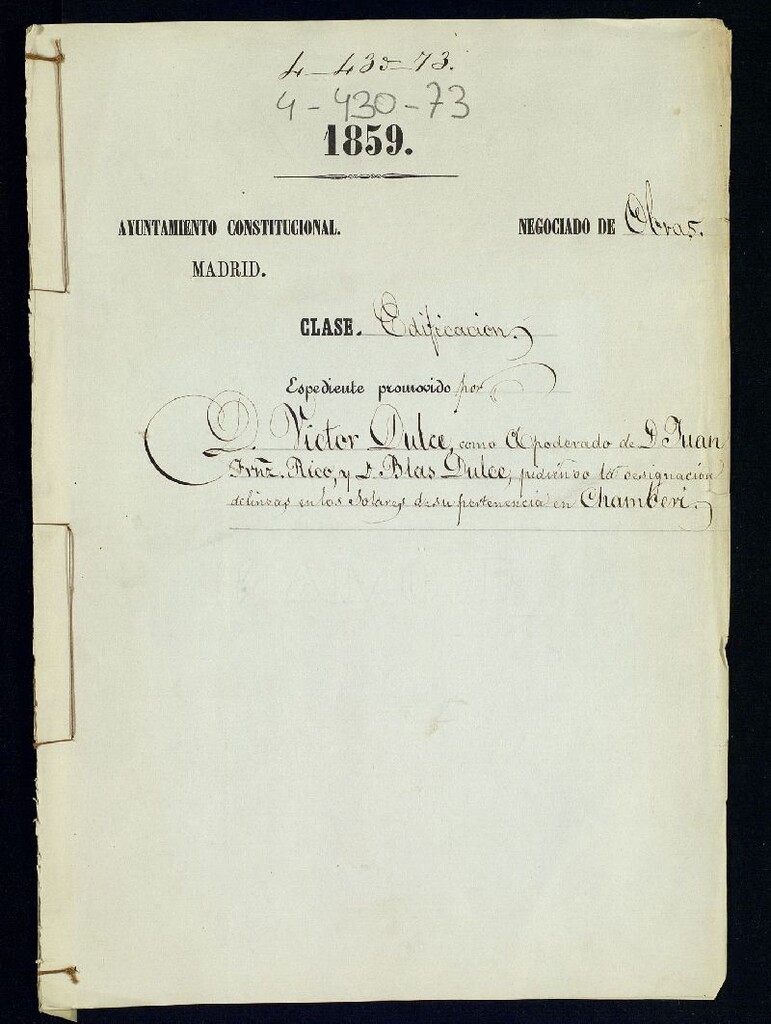 4-430-73.
4-430-73
1859.
AYUNTAMIENTO CONSTITUCIONAL. NEGOCIADO DE Obras.
MADRID.
CLASE. Edificacion.
Espediente promovido por
D. Victor Dulce, como Apoderado de D. Juan
Frnz. Rico, y D. Blas Dulce, pidiendo la designacion
de lineas en los Solares de su pertenencia en Chamberi.